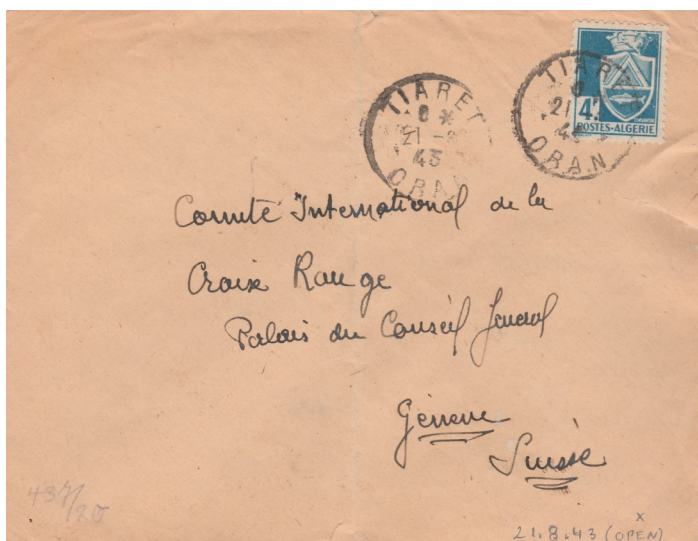 TIARET
8 *
21 - 8
43
ORAN
TIARET
8
21
43
ORAN
4
POSTES-ALGERIE
Comité International de la
Croix Rouge
Palais du Conseil General
Génève
Suisse
437/20
x
21.8.43 (OPEN)